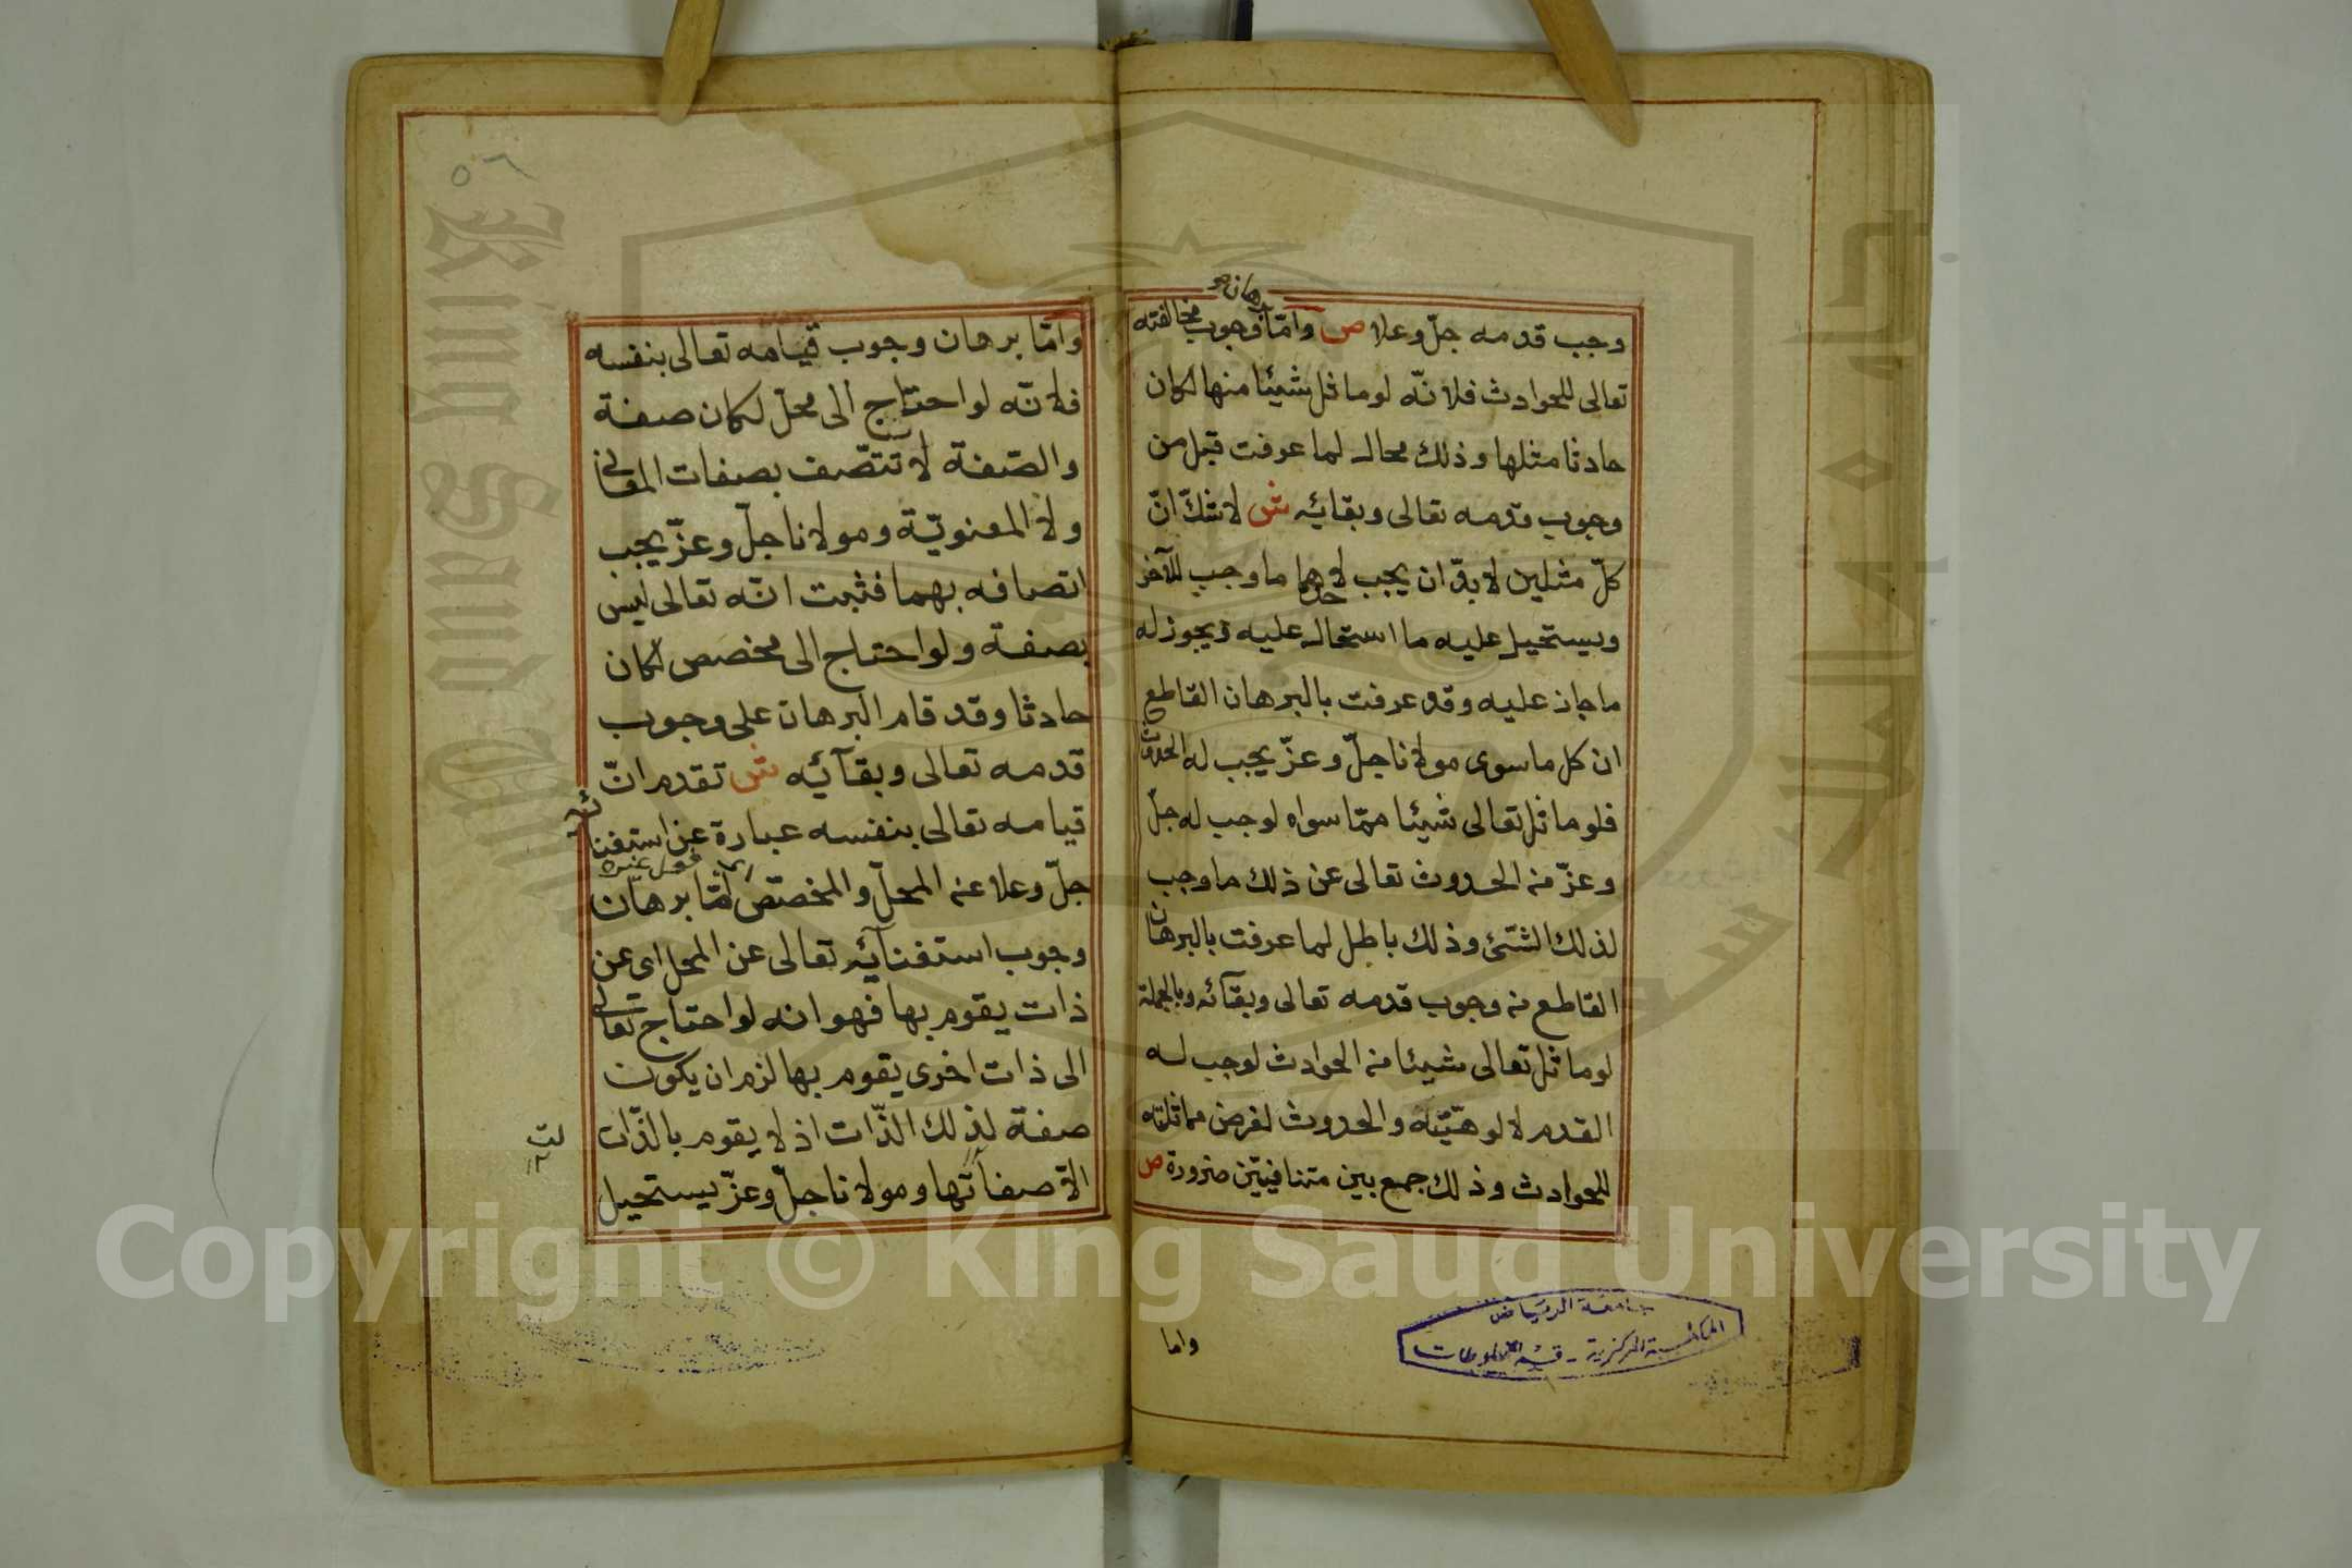 وجب قدمه جلّ وعلا ص وأمّا برهان وجوب مخالفته
تعالى للحوادث فلانّه لو ماثل شيئا منها لكان
حادثا مثلها وذلك محال لما عرفت قبل من
وجوب قدمه تعالى وبقائه ش لا شكّ انّ
كلّ مثلين لا بدّ ان يجب لاحدهما ما وجب للآخر
ويستحيل عليه ما استحال عليه ويجوز له
ما جاز عليه وقد عرفت بالبرهان القاطع
ان كل ما سوى مولانا جلّ وعزّ يجب له الحدوث
فلو ماثل تعالى شيئا ممّا سواه لوجب له جلّ
وعزّ من الحدوث تعالى عن ذلك ما وجب
لذلك الشئ وذلك باطل لما عرفت بالبرهان
القاطع من وجوب قدمه تعالى وبقآئه وبالجملة
لو ماثل تعالى شيئا من الحوادث لوجب له
القدم لالوهيّته والحدوث لفرض مماثلته
للحوادث وذلك جمع بين متنافيين ضرورة ص
واما
جامعة الرياض
المكتبة المركزية - قسم المخطوطات
٥٦
وامّا برهان وجوب قيامه تعالى بنفسه
فلانّه لو احتاج الى محلّ لكان صفة
والصّفة لا تتّصف بصفات المعانى
ولا المعنويّة ومولانا جلّ وعزّ يجب
اتصافه بهما فثبت انّه تعالى ليس
بصفة ولو احتاج الى مخصص لكان
حادثا وقد قام البرهان على وجوب
قدمه تعالى وبقآئه ش تقدم انّ
قيامه تعالى بنفسه عبارة عن استغنائه
جلّ وعلا عن المحلّ والمخصّص امّا برهان
وجوب استغنآئه تعالى عن المحل اى عن
ذات يقوم بها فهو انه لو احتاج تعالى
الى ذات اخرى يقوم بها لزم ان يكون
صفة لذلك الذّات اذ لا يقوم بالذّات
الّا صفاتها ومولانا جلّ وعزّ يستحيل
Copyright © King Saud University
King Saud